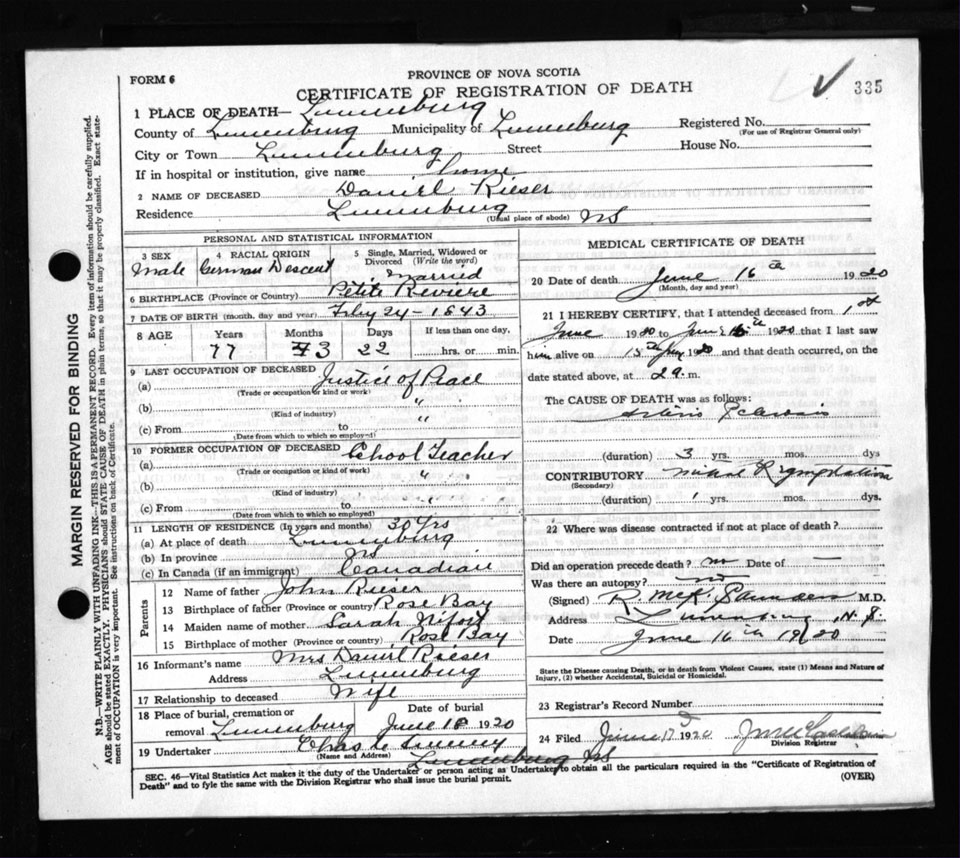 FORM 6
PROVINCE OF NOVA SCOTIA
CERTIFICATE OF REGISTRATION OF DEATH
335
1 PLACE OF DEATH— Lunenburg
County of Lunenburg Municipality of Lunenburg Registered No.
(For use of Registrar General only)
City or Town Lunenburg Street House No.
If in hospital or institution, give name home
2 NAME OF DECEASED Daniel Rieser
Residence Lunenburg (Usual place of abode) NS
PERSONAL AND STATISTICAL INFORMATION
3 SEX Male
4 RACIAL ORIGIN German Descent
5 Single, Married, Widowed or Divorced (Write the word) Married
6 BIRTHPLACE (Province or Country) Petite Reviere
7 DATE OF BIRTH (month, day and year) Feby 24-1843
8 AGE Years Months Days If less than one day,
77 3 22 hrs. or min.
9 LAST OCCUPATION OF DECEASED
(a) Justice of Peace
(Trade or occupation or kind or work)
(b) "
(Kind of industry)
(c) From "
(Date from which to which so employed)
10 FORMER OCCUPATION OF DECEASED
(a) School Teacher
(Trade or occupation or kind of work)
(b) "
(Kind of industry)
(c) From "
(Date from which to which so employed)
11 LENGTH OF RESIDENCE (In years and months) 30 yrs
(a) At place of death Lunenburg
(b) In province NS
(c) In Canada (if an immigrant) Canadian
Parents
12 Name of father John Rieser
13 Birthplace of father (Province or country) Rose Bay
14 Maiden name of mother Sarah
15 Birthplace of mother (Province or country) Rose Bay
16 Informant's name Mrs Daniel Rieser
Address Lunenburg
17 Relationship to deceased Wife
18 Place of burial, cremation or removal Lunenburg
Date of burial June 18 1920
19 Undertaker Chas
(Name and Address) Lunenburg NS
MEDICAL CERTIFICATE OF DEATH
20 Date of death June 16th 1920
(Month, day and year)
21 I HEREBY CERTIFY, that I attended deceased from 1st
June 1920 to June 16th 1920 that I last saw
him alive on 15th 1920 and that death occurred, on the
date stated above, at 2 a. m.
The CAUSE OF DEATH was as follows:
Arterio Sclerosis
(duration) 3 yrs. mos. dys
CONTRIBUTORY Mitral Regurgitation
(Secondary)
(duration) 1 yrs. mos. dys.
22 Where was disease contracted if not at place of death?
Did an operation precede death? no Date of —
Was there an autopsy? no
(Signed) R. McK. Saunders M.D.
Address Lunenburg, N.S.
Date June 16th 1920
State the Disease causing Death, or in death from Violent Causes, state (1) Means and Nature of
Injury, (2) whether Accidental, Suicidal or Homicidal.
23 Registrar's Record Number
24 Filed June 17 1920
Division Registrar
SEC. 46—Vital Statistics Act makes it the duty of the Undertaker or person acting as Undertaker to obtain all the particulars required in the "Certificate of Registration of
Death" and to fyle the same with the Division Registrar who shall issue the burial permit. (OVER)
MARGIN RESERVED FOR BINDING
N.B.—WRITE PLAINLY WITH UNFADING INK—THIS IS A PERMANENT RECORD. Every item of information should be carefully supplied.
AGE should be stated EXACTLY. PHYSICIANS should STATE CAUSE OF DEATH in plain terms, so that it may be properly classified. Exact state-
ment of OCCUPATION is very important. See instructions on back of Certificate.